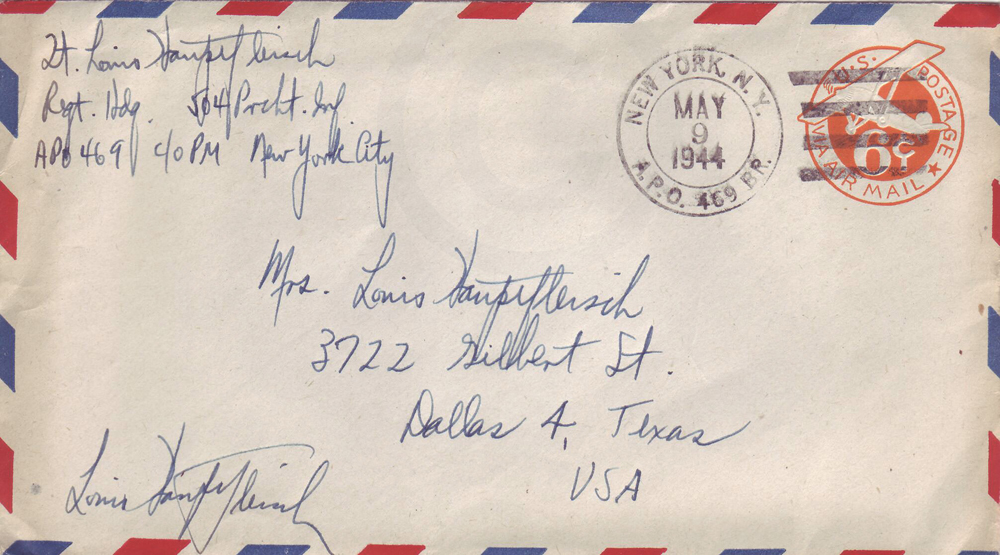 Lt. Louis Hauptfleisch
Regt. Hdq. 504 Prcht. Inf.
APO 469 c/o PM New York City
NEW YORK, N.Y.
MAY
9
1944
A.P.O. 469 BR.
U.S. POSTAGE
6¢
VIA AIR MAIL
Mrs. Louis Hauptfleisch
3722 Gilbert St.
Dallas 4, Texas
USA
Louis Hauptfleisch